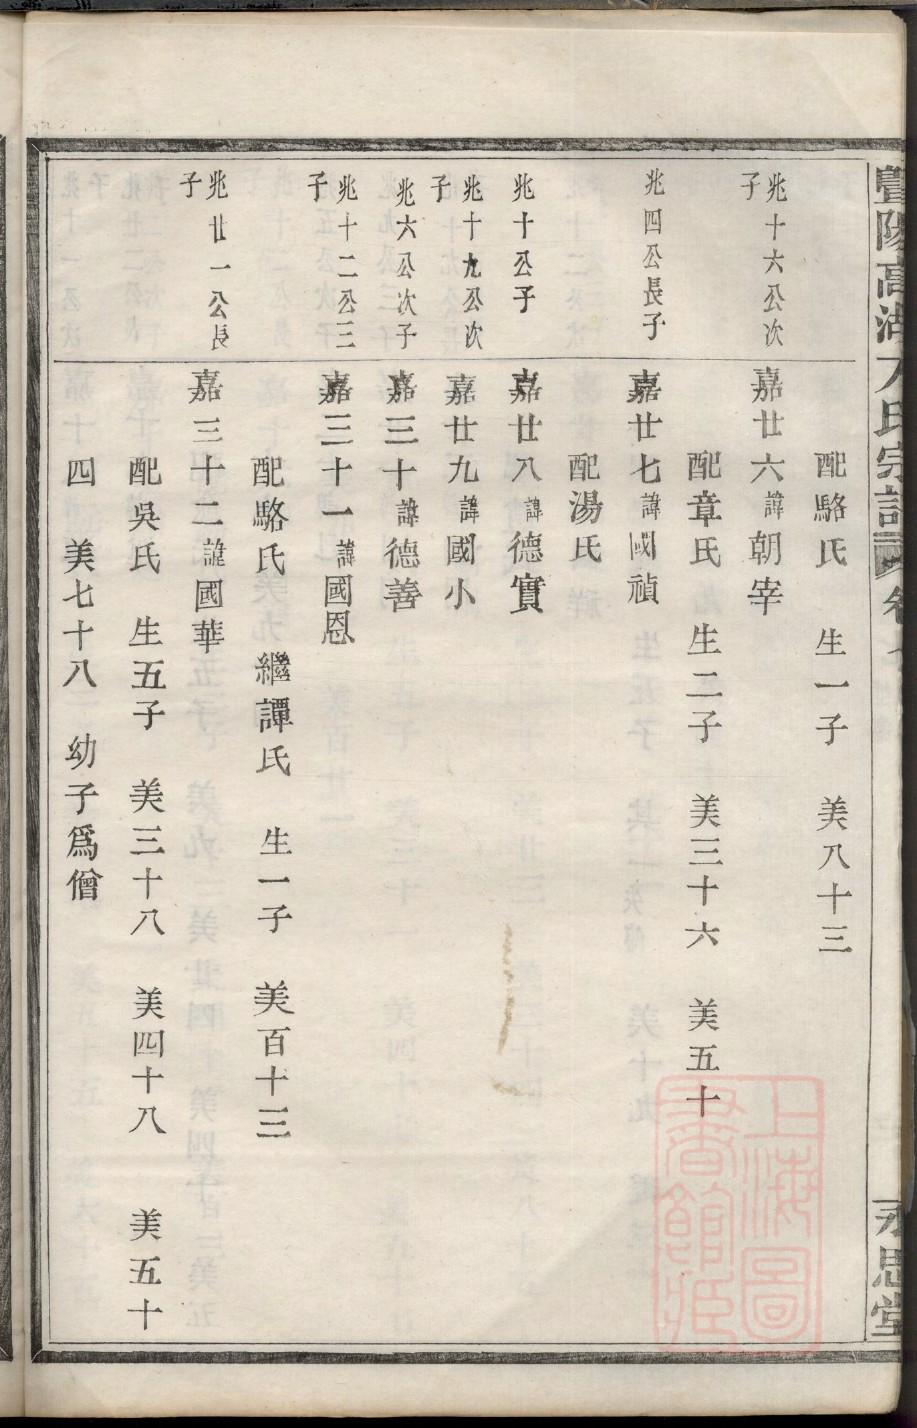 暨陽高湖方氏宗譜 卷七 永思堂
配駱氏 生一子 美八十三
兆十六公次子
嘉廿六諱朝宰
配章氏 生二子 美三十六 美五十
兆四公長子
嘉廿七諱國禎
配湯氏
兆十公子
嘉廿八諱德實
兆十九公次子
嘉廿九諱國小
兆六公次子
嘉三十諱德善
兆十二公三子
嘉三十一諱國恩
配駱氏 繼譚氏 生一子 美百十三
兆廿一公長子
嘉三十二諱國華
配吳氏 生五子 美三十八 美四十八 美五十
四 美七十八 幼子為僧
上海圖書館藏